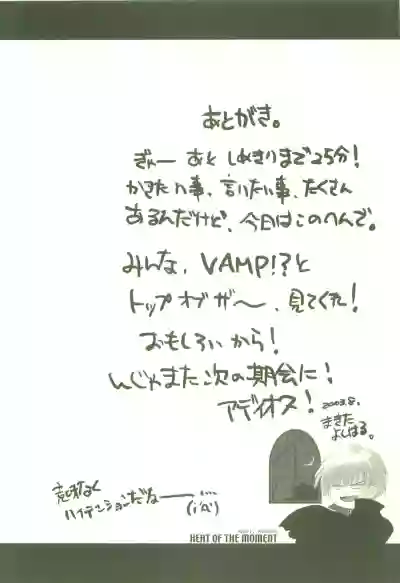 あとがき。
ぎゃー あと しめきりまで25分!
かきたい事、言いたい事、たくさん
あるんだけど、今日はこのへんで。
みんな、VAMP!?と
トップオブザ〜、見てくれ!
おもしろいから!
んじゃまた次の期会に!
アディオス!
2003.8.
まきた
よしはる。
ハイテンションだなー
HEAT OF THE MOMENT